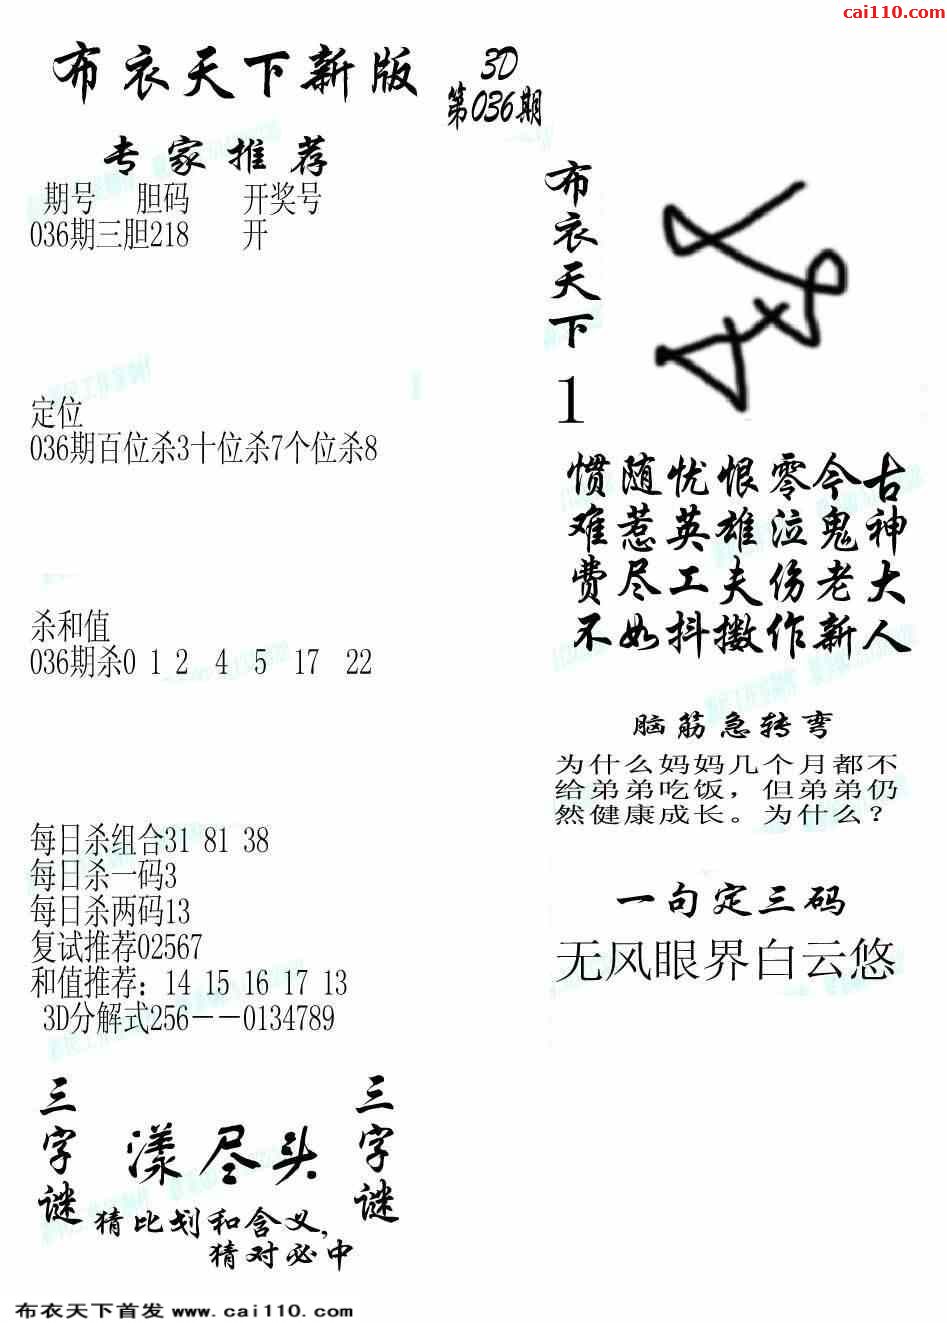 cai110.com
布衣天下新版
3D
第036期
专家推荐
期号 胆码 开奖号
036期三胆218 开
定位
036期百位杀3十位杀7个位杀8
杀和值
036期杀0 1 2 4 5 17 22
每日杀组合31 81 38
每日杀一码3
每日杀两码13
复试推荐02567
和值推荐：14 15 16 17 13
3D分解式256－－0134789
三字谜
漾尽头
三字谜
猜比划和含义，
猜对必中
布衣天下
1
惯随忧恨零今古
难惹英雄泣鬼神
费尽工夫伤老大
不如抖擞作新人
脑筋急转弯
为什么妈妈几个月都不
给弟弟吃饭，但弟弟仍
然健康成长。为什么？
一句定三码
无风眼界白云悠
布衣天下首发 www.cai110.com